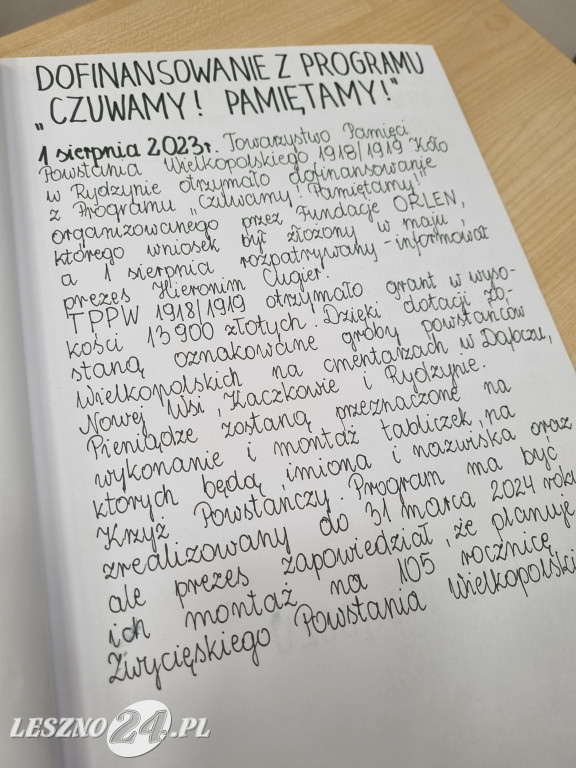 DOFINANSOWANIE Z PROGRAMU
„CZUWAMY! PAMIĘTAMY!"
1 sierpnia 2023r. Towarzystwo Pamięci
Powstania Wielkopolskiego 1918/1919 Koło
w Rydzynie otrzymało dofinansowanie
z Programu „Czuwamy! Pamiętamy!"
organizowanego przez Fundacje ORLEN,
którego wniosek był złożony w maju,
a 1 sierpnia rozpatrywany - informował
prezes Hieronim Cugier.
TPPW 1918/1919 otrzymało grant w wyso-
kości 13 900 złotych. Dzięki dotacji zo-
staną oznakowane groby powstańców
Wielkopolskich na cmentarzach w Dąbczu,
Nowej Wsi, Kaczkowie i Rydzynie.
Pieniądze zostaną przeznaczone na
wykonanie i montaż tabliczek, na
których będą imiona i nazwiska oraz
Krzyż Powstańczy. Program ma być
zrealizowany do 31 marca 2024 roku,
ale prezes zapowiedział, że planuje
ich montaż na 105 rocznicę
Zwycięskiego Powstania Wielkopolski
LESZNO24.PL